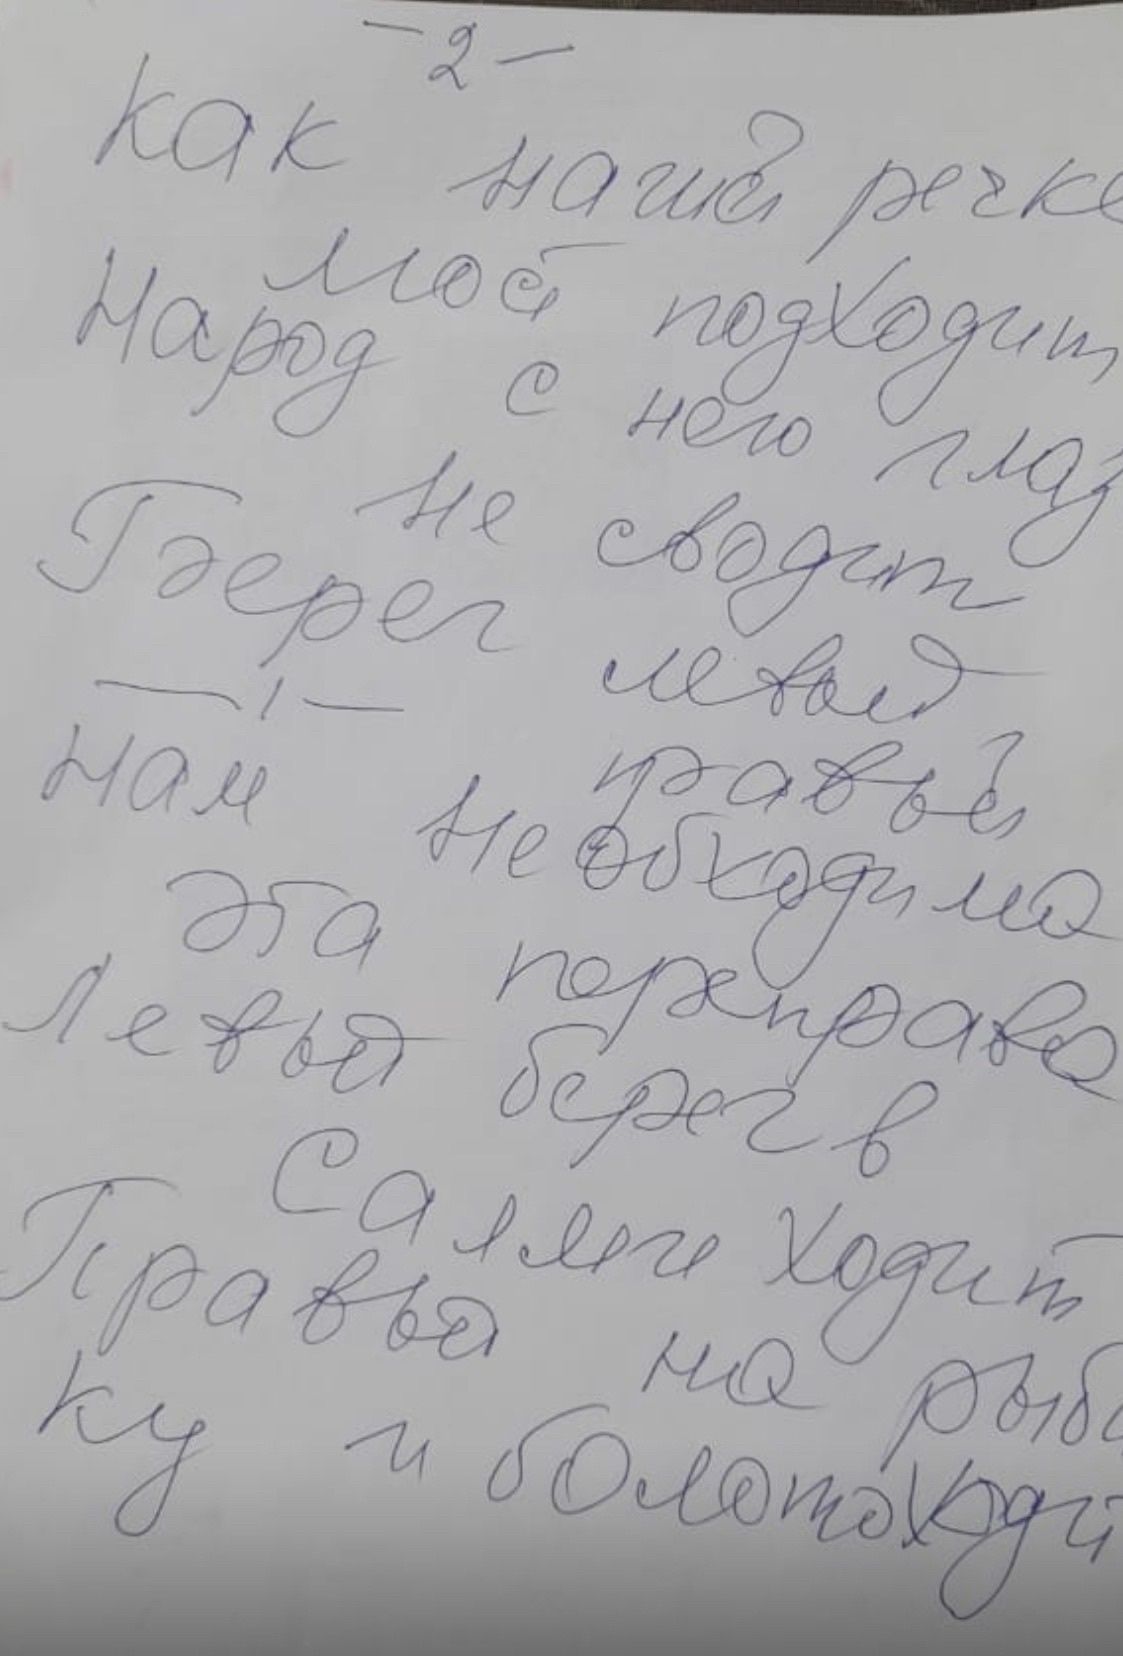 -2-
Как нашей речке
мост подходит
Народ с него глаз
не сводит
Берег левый
-,-
правый
нам необходима
эта переправа
Левый берег в
ходит
Правый на рыб
ку и болото